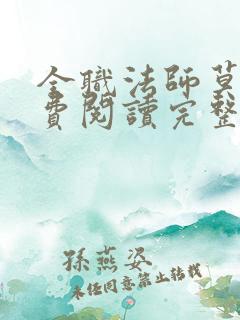 全職法師莫
費閱讀完整
孫燕姿
未经同意禁止转载